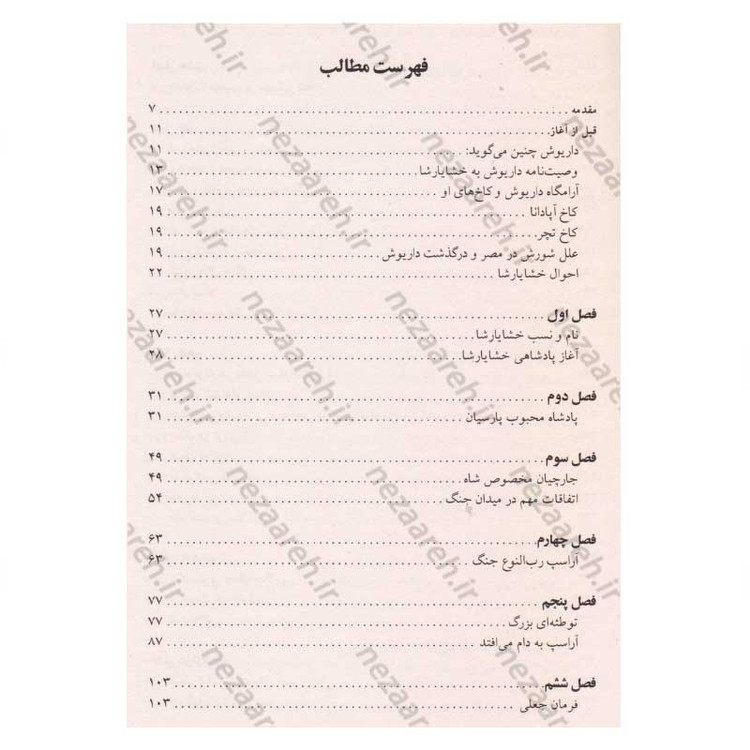 فهرست مطالب
مقدمه ........ ۷
قبل از آغاز ........ ۱۱
داریوش چنین می‌گوید: ........ ۱۱
وصیت‌نامه داریوش به خشایارشا ........ ۱۳
آرامگاه داریوش و کاخ‌های او ........ ۱۷
کاخ آپادانا ........ ۱۹
کاخ تچر ........ ۱۹
علل شورش در مصر و درگذشت داریوش ........ ۱۹
احوال خشایارشا ........ ۲۲
فصل اول ........ ۲۷
نام و نسب خشایارشا ........ ۲۷
آغاز پادشاهی خشایارشا ........ ۲۸
فصل دوم ........ ۳۱
پادشاه محبوب پارسیان ........ ۳۱
فصل سوم ........ ۴۹
جارچیان مخصوص شاه ........ ۴۹
اتفاقات مهم در میدان جنگ ........ ۵۴
فصل چهارم ........ ۶۳
آراسپ رب‌النوع جنگ ........ ۶۳
فصل پنجم ........ ۷۷
توطئه‌ای بزرگ ........ ۷۷
آراسپ به دام می‌افتد ........ ۸۷
فصل ششم ........ ۱۰۳
فرمان جعلی ........ ۱۰۳
nezaareh.ir